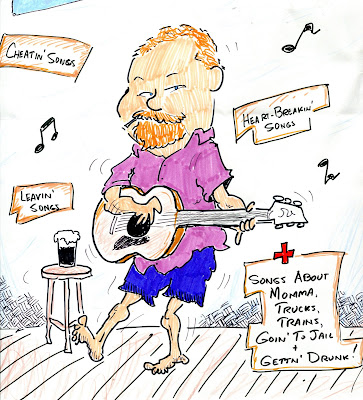 CHEATIN' SONGS
HEART-BREAKIN'
SONGS
LEAVIN'
SONGS
SONGS ABOUT
MOMMA,
TRUCKS,
TRAINS,
GOIN' TO JAIL
+
GETTN' DRUNK.